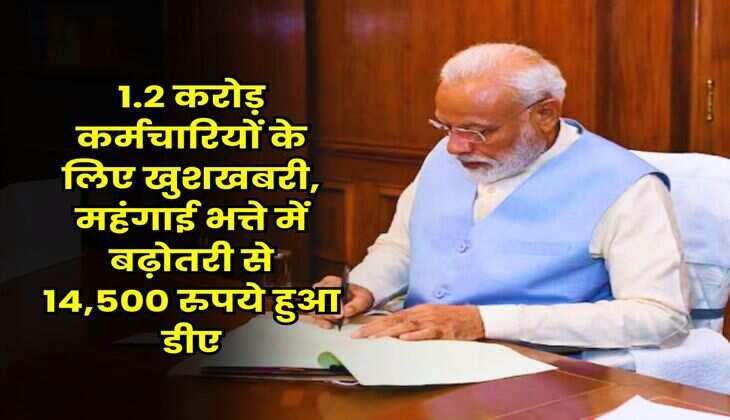 1.2 करोड़
कर्मचारियों के
लिए खुशखबरी,
महंगाई भत्ते में
बढ़ोतरी से
14,500 रुपये हुआ
डीए